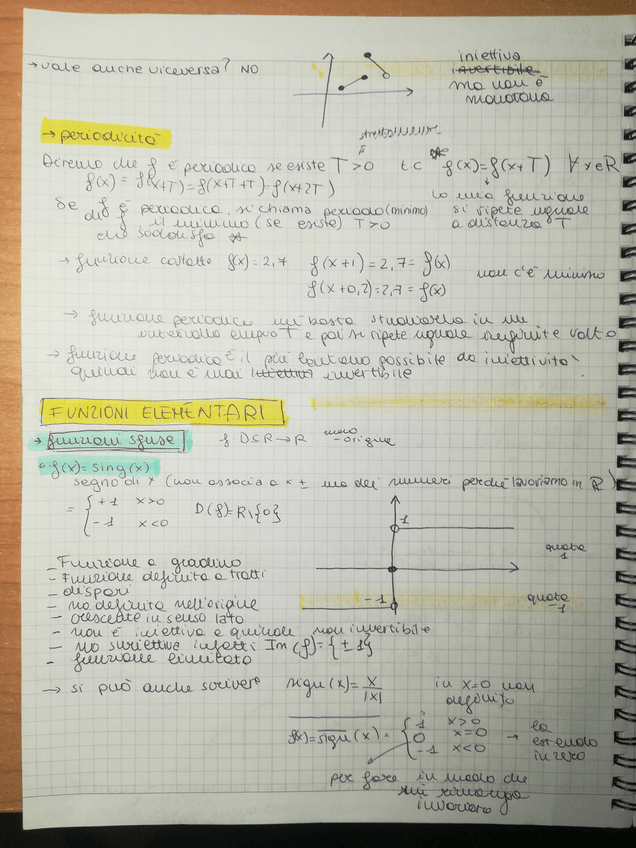 → vale anche viceversa? NO
iniettiva
invertibile
ma non è
monotona
→ periodicità
strettamente
Diremo che f è periodica se esiste T>0 t.c * f(x)=f(x+T) ∀x∈R
f(x) = f(x+T)=f(x+T+T)=f(x+2T)
la mia funzione
si ripete uguale
a distanza T
Se f è periodica, si chiama periodo (minimo)
di f il minimo (se esiste) T>0
che soddisfa *
→ funzione costante f(x)=2,7 f(x+1)=2,7=f(x)
f(x+0,2)=2,7=f(x)
non c'è minimo
→ funzione periodica mi basta studiarla in un
intervallo ampio T e poi si ripete uguale infinite volte
→ funzione periodica è il più lontano possibile da iniettività
quindi non è mai invertibile
FUNZIONI ELEMENTARI
→ funzioni sfuse f D⊆R→R meno
-origine
• f(x)=sing(x)
segno di x (non associa a x ± uno dei numeri perché lavoriamo in R)
= { +1 x>0
-1 x<0
D(f)=R\{0}
1
quota
1
-1
quota
-1
- Funzione a gradino
- Funzione definita a tratti
- dispari
- no definita nell'origine
- crescente in senso lato
- non è iniettiva e quindi non invertibile
- no suriettiva infatti Im(f)={±1}
- funzione limitata
→ si può anche scrivere sign(x)=x/|x| in x=0 non
definito
f(x)=sign(x) = { 1 x>0
0 x=0
-1 x<0
→ la
estendo
in zero
per fare in modo che
mi rimanga
invariata